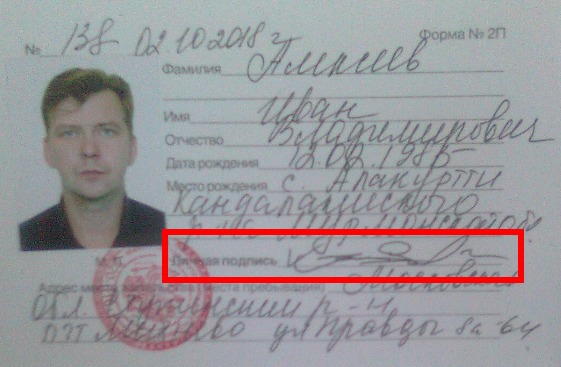 № 138 02.10.2018 г Форма № 2П
Фамилия Алексеев
Имя Иван
Отчество Владимирович
Дата рождения 12.02.1985
Место рождения с. Алакуртти
Кандалакшского
М. П. Личная подпись
Адрес места жительства (места пребывания) Московская
Обл. р-н
ПГТ Михнево ул Правды 8а-64